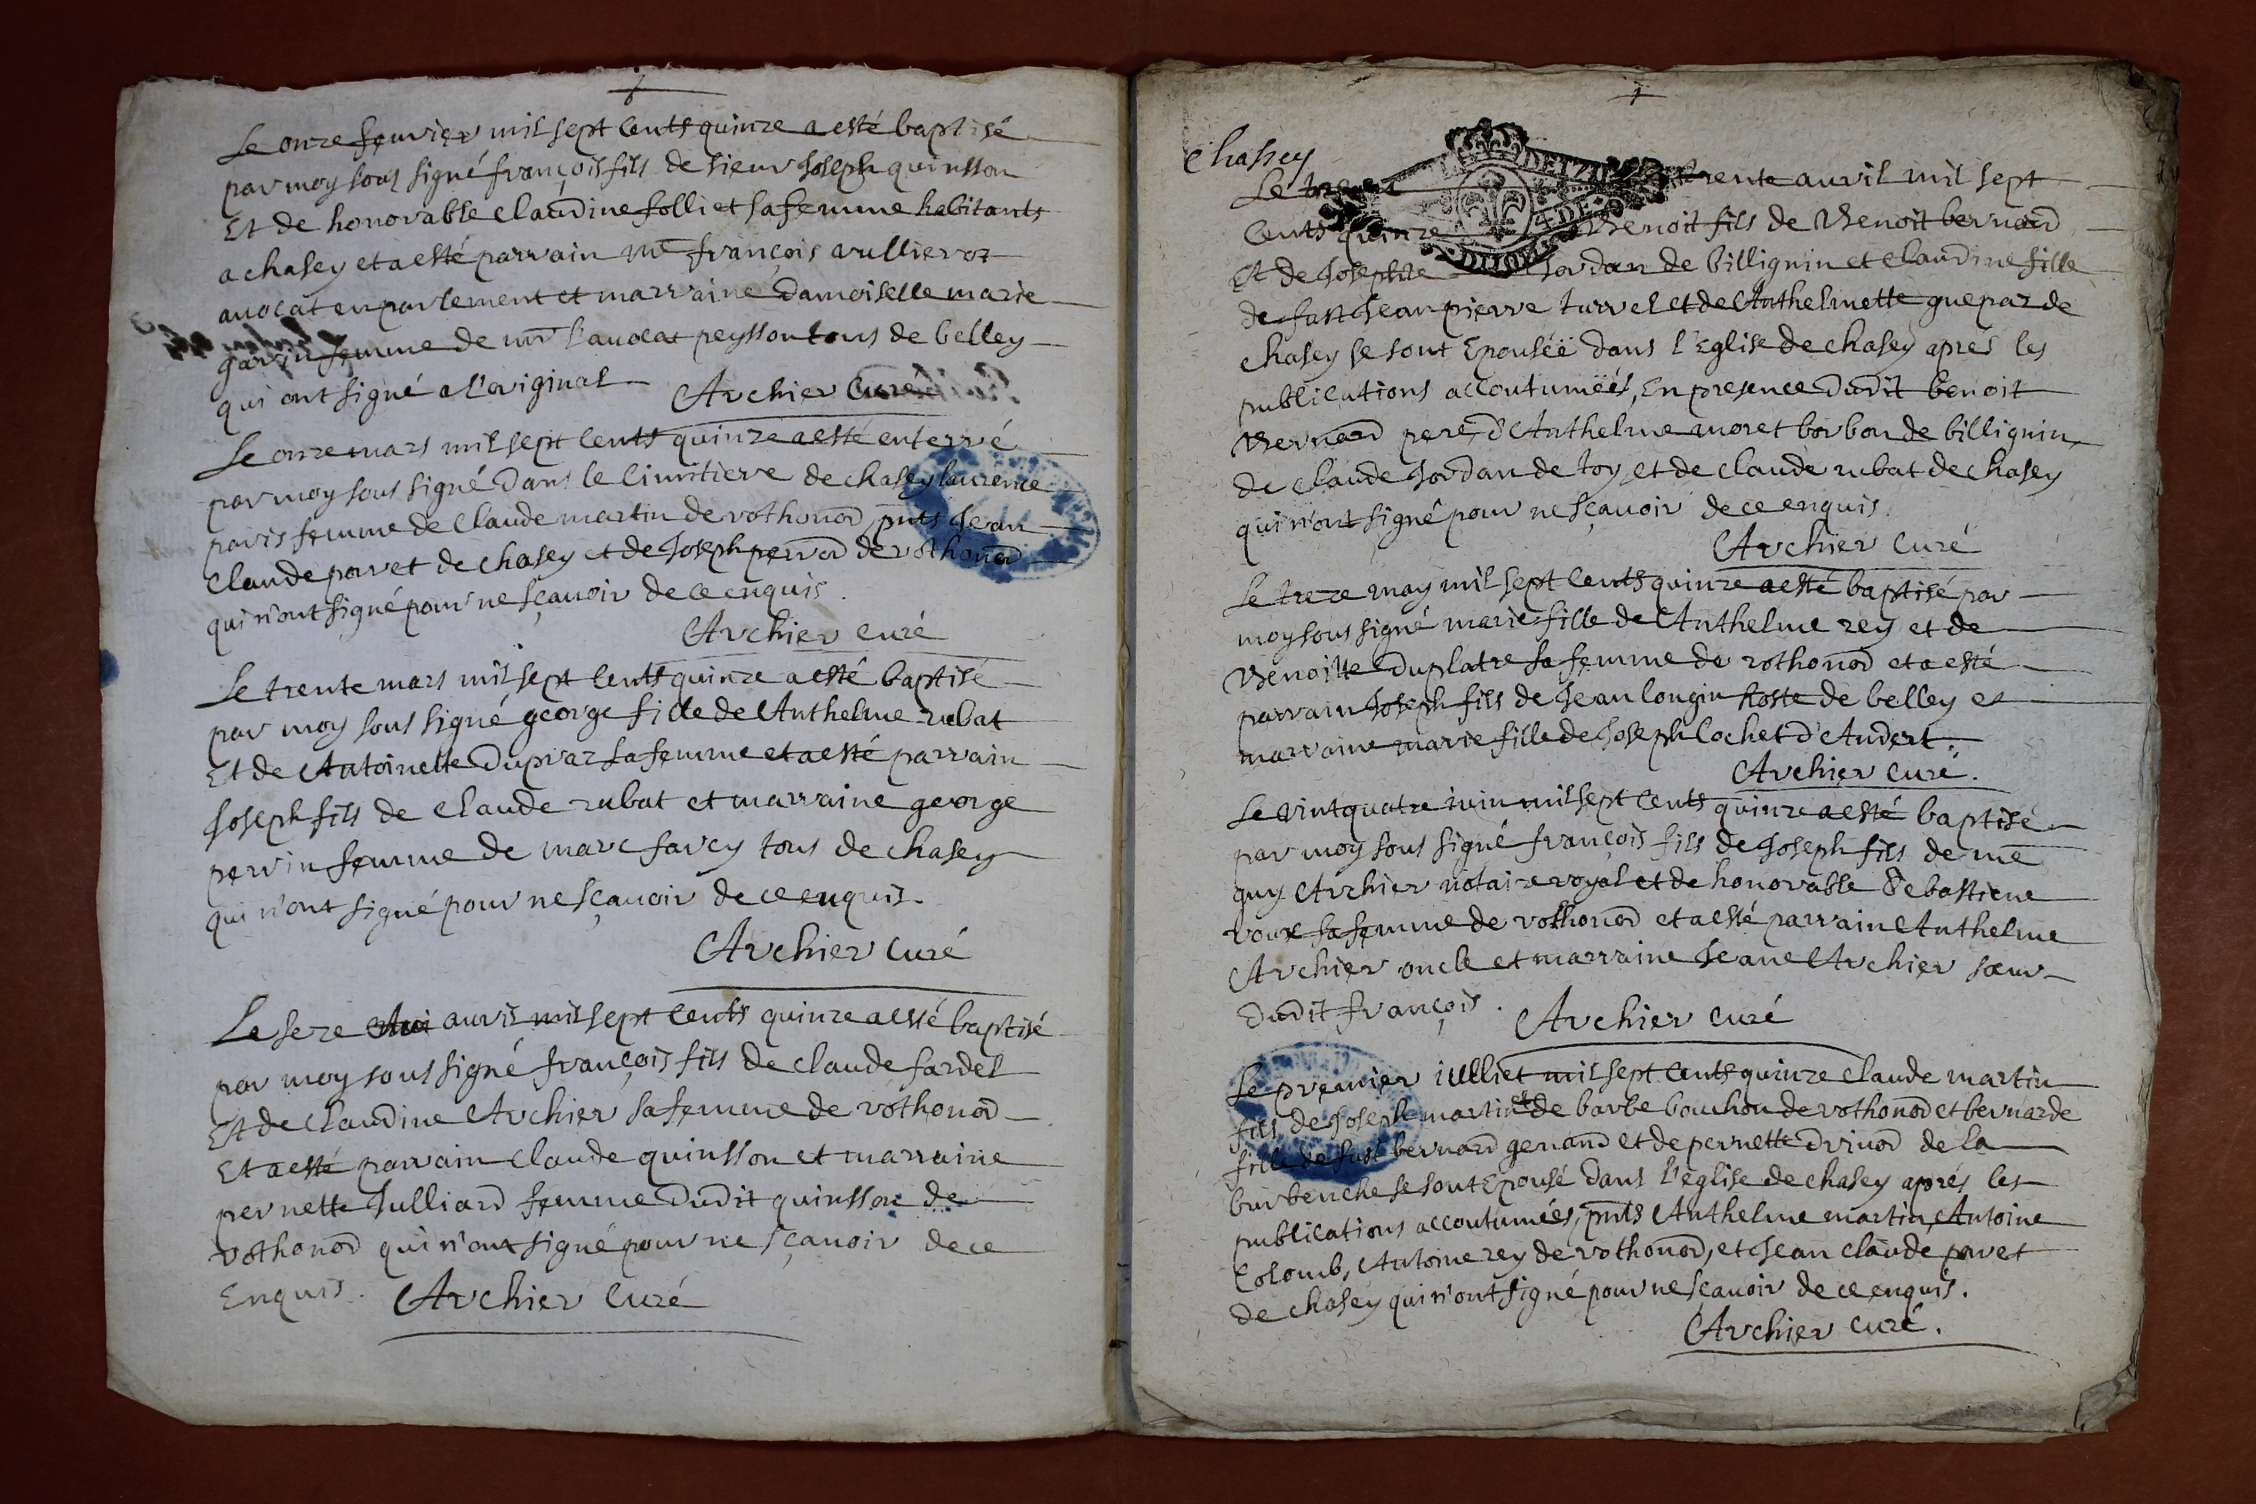 Le onze fevrier mil sept cents quinze a esté baptisé
par moy sous signé françois fils de sieur Joseph quinsson
Et de honorable claudine folliet sa femme habitants
a chasey et a esté parrain me françois vullieroz
avocat en parlement et marraine damoiselle marie
garin femme de mr l'avocat peysson tous de belley
qui ont signé a l'original
Archier Curé
Le onze mars mil sept cents quinze a esté enterré
par moy sous signé dans le cimitiere de chasey laurence
paris femme de claude martin de rothonod pnts Jean
claude poret de chasey et de Joseph perrod de rothonod
qui n'ont signé pour ne sçavoir de ce enquis.
Archier curé
Le trente mars mil sept cents quinze a esté baptisé
par moy sous signé george fille de Anthelme rubat
Et de Antoinette dupraz sa femme et a esté parrain
Joseph fils de claude rubat et marraine george
perrin femme de marc farcy tous de chasey
qui n'ont signé pour ne sçavoir de ce enquis.
Archier curé
Le seze avril mil sept cents quinze a esté baptisé
par moy sous signé françois fils de claude fardel
Et de claudine Archier sa femme de rothonod
Et a esté parrain claude quinsson et marraine
pernette Julliard femme dudit quinsson de
rothonod qui n'ont signé pour ne sçavoir de ce
Enquis.
Archier Curé
chassey
Le trente avril mil sept
cents quinze Benoit fils de Benoit bernard
Et de Josephte Jordan de billignin et claudine fille
de fust Jean pierre turrel et de Anthelmette guepaz de
chasey se sont Epouséë dans l'Eglise de chasey apres les
publications accoutumëés, En presence dudit benoit
Bernard pere, d'Anthelme moret borbon de billignin,
de claude Jordan de toy, et de claude rubat de chasey
qui n'ont signé pour ne sçavoir de ce enquis.
Archier curé
Le treze may mil sept cents quinze a esté baptisé par
moy sous signé marie fille de Anthelme rey et de
Benoitte duplatre sa femme de rothonod et a esté
parrain Joseph fils de Jean longin hoste de belley et
marraine marie fille de Joseph Cochet d'Andert.
Archier curé.
Le vint quatre iuin mil sept cents quinze a esté baptisé
par moy sous signé françois fils de Joseph fils de me
guy Archier notaire royal et de honorable Sebastiene
roux sa femme de rothonod et a esté parrain Anthelme
Archier oncle et marraine Jeane Archier sœur
dudit françois.
Archier curé
Le premier iulliet mil sept cents quinze claude martin
fils de Joseph martin et de barbe bouchon de rothonod et bernarde
fille de fust bernard genand et de pernette drivod de la
burbenche se sont Epousé dans l'église de chasey aprés les
publications accoutumées, pnts Anthelme martin, Antoine
Colomb, Antoine rey de rothonod, et Jean claude poret
de chasey qui n'ont signé pour ne sçavoir de ce enquis.
Archier curé.